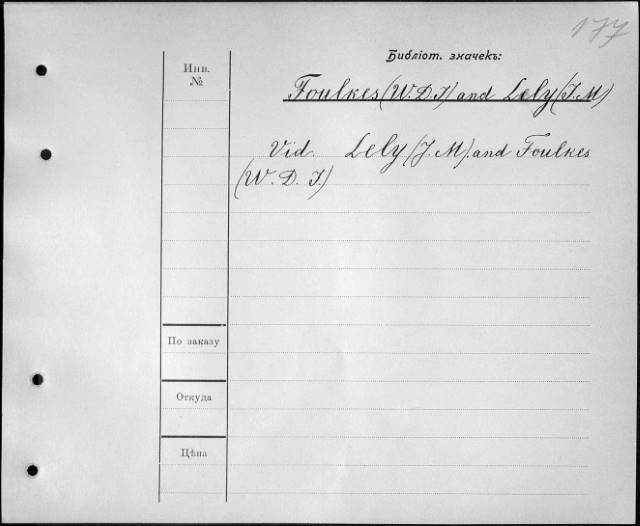 177
Библіот. значекъ:
Инв.
№
Foulkes (W. D. I.) and Lely (J. M)
Vid. Lely (J. M). and Foulkes
(W. D. I.)
По заказу
Откуда
Цѣна